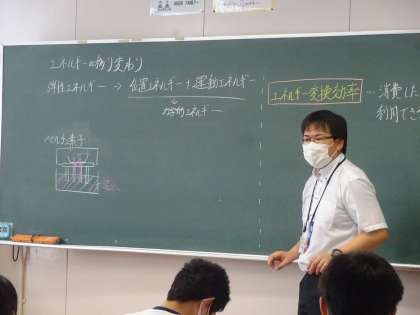 エネルギーの移り変わり
弾性エネルギー → 位置エネルギー + 運動エネルギー
力学的エネルギー
ペルチェ素子
エネルギー変換効率 … 消費した
利用できる